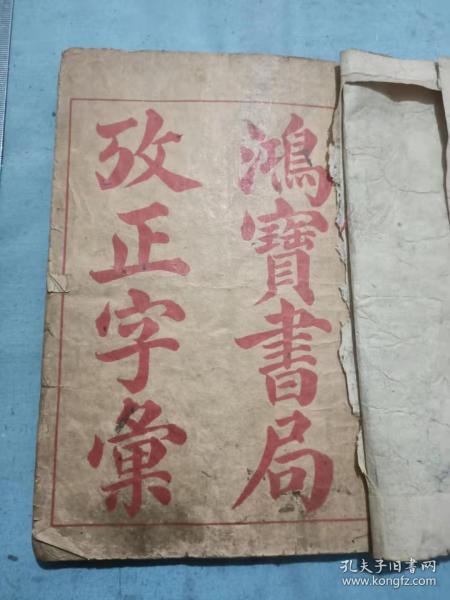 鴻寶書局
攷正字彙
孔夫子旧书网
www.kongfz.com